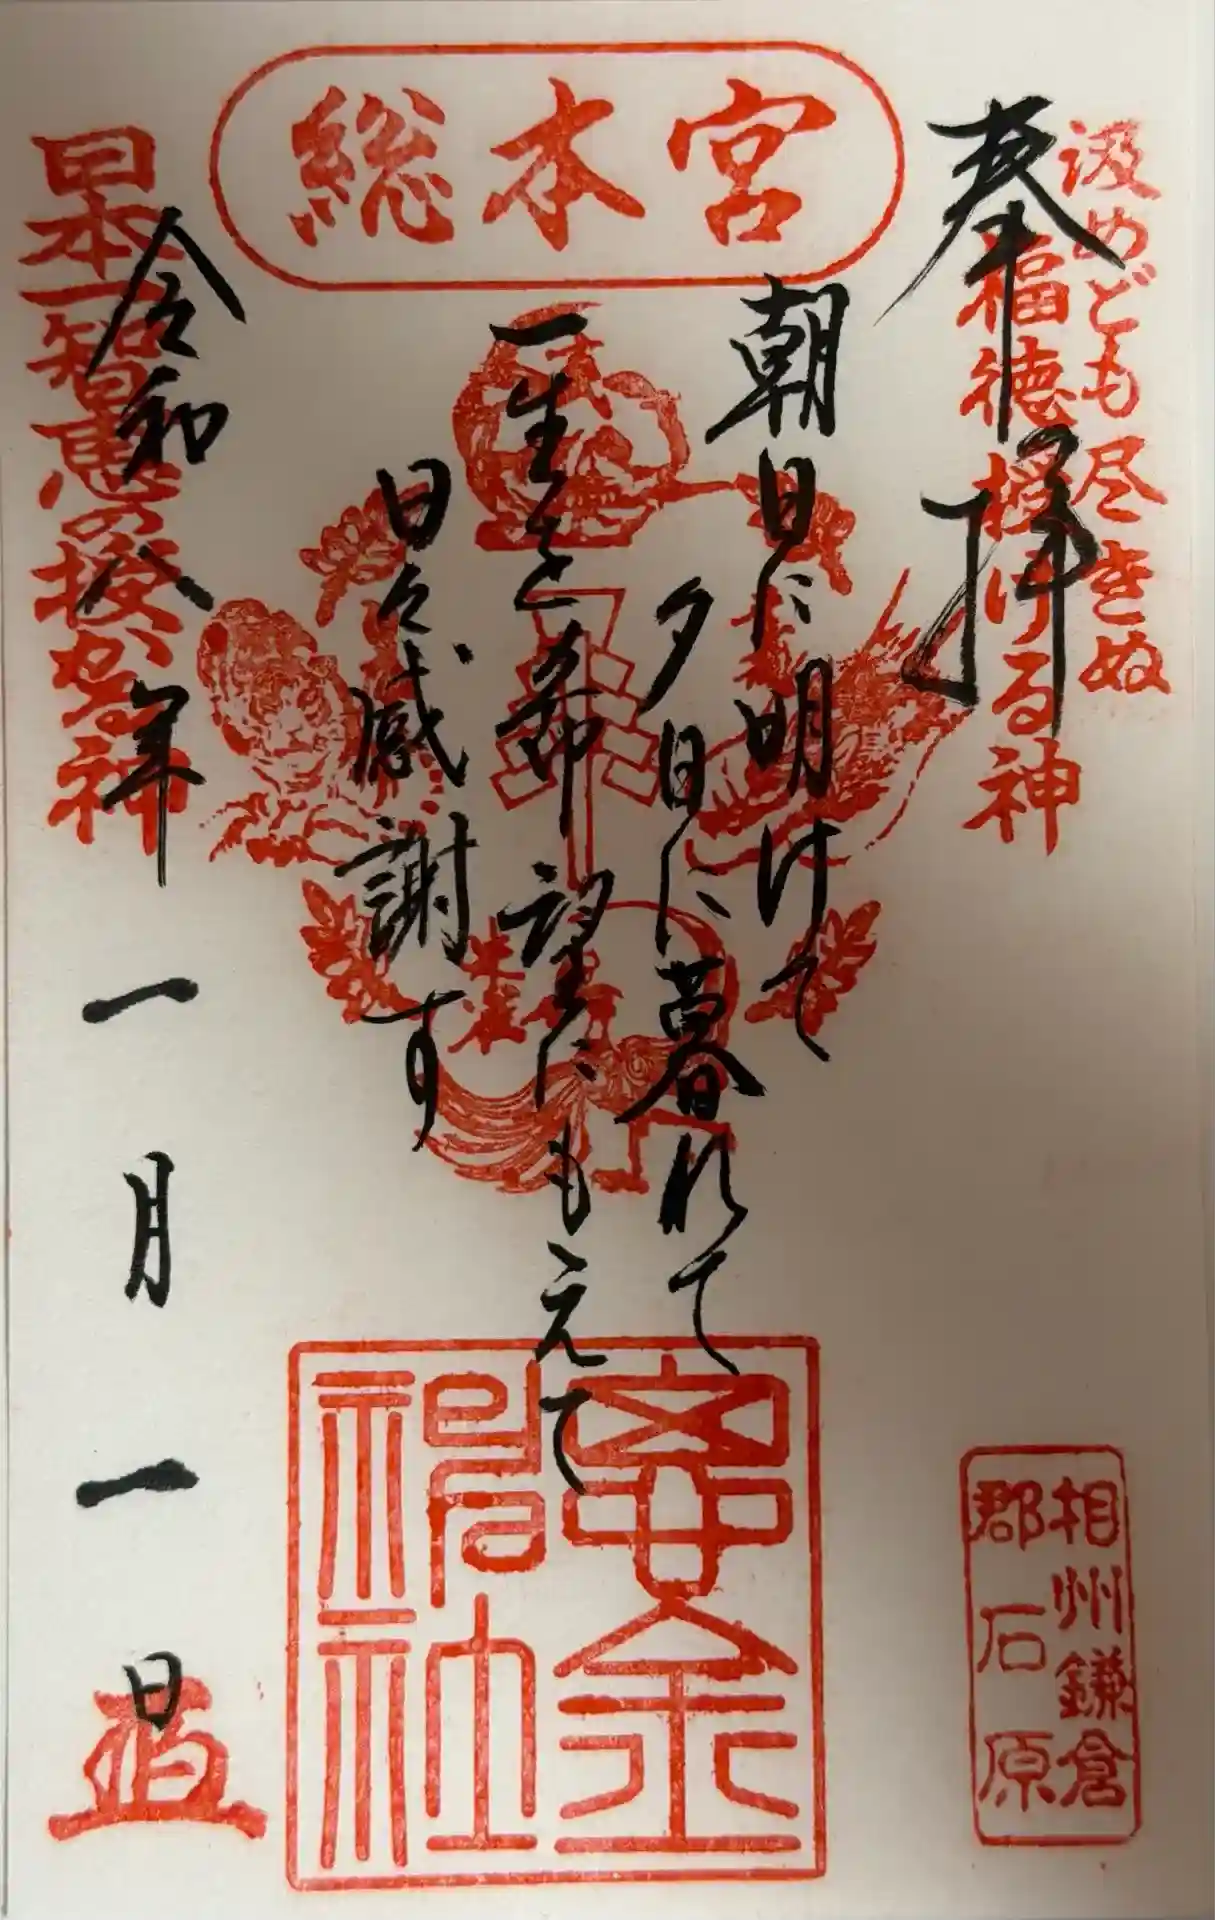 総本宮
汲めども尽きぬ
福徳授ける神
奉拝
朝日に明けて
夕日に暮れて
一生を希望にもえて
日々感謝す
日本一智恵の授かる神
令和八年一月一日
朱雀
相州鎌倉
郡石原